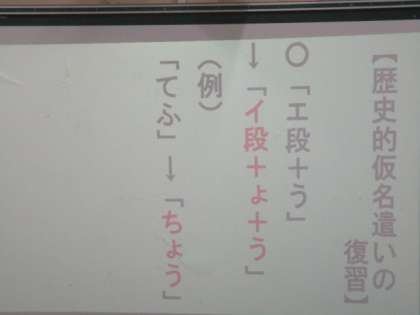 【歴史的仮名遣いの
復習】
〇「エ段＋う」
→「イ段＋ょ＋う」
（例）
「てふ」→「ちょう」